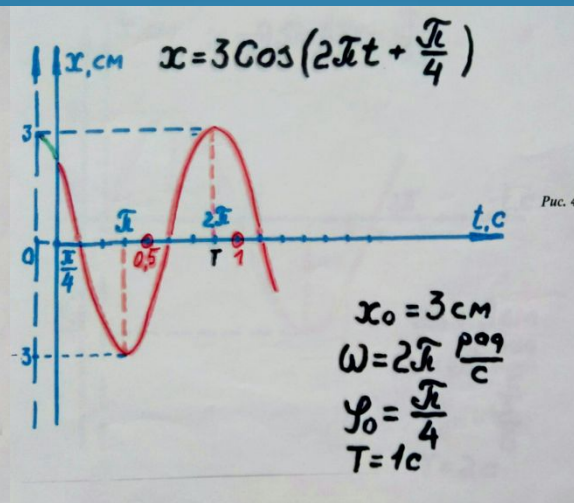 x = 3 Cos(2πt + π/4)
x, см
3
π
2π
t, c
0
π/4
0,5
T
1
-3
Рис. 4
x₀ = 3 см
ω = 2π рад/с
φ₀ = π/4
T = 1c